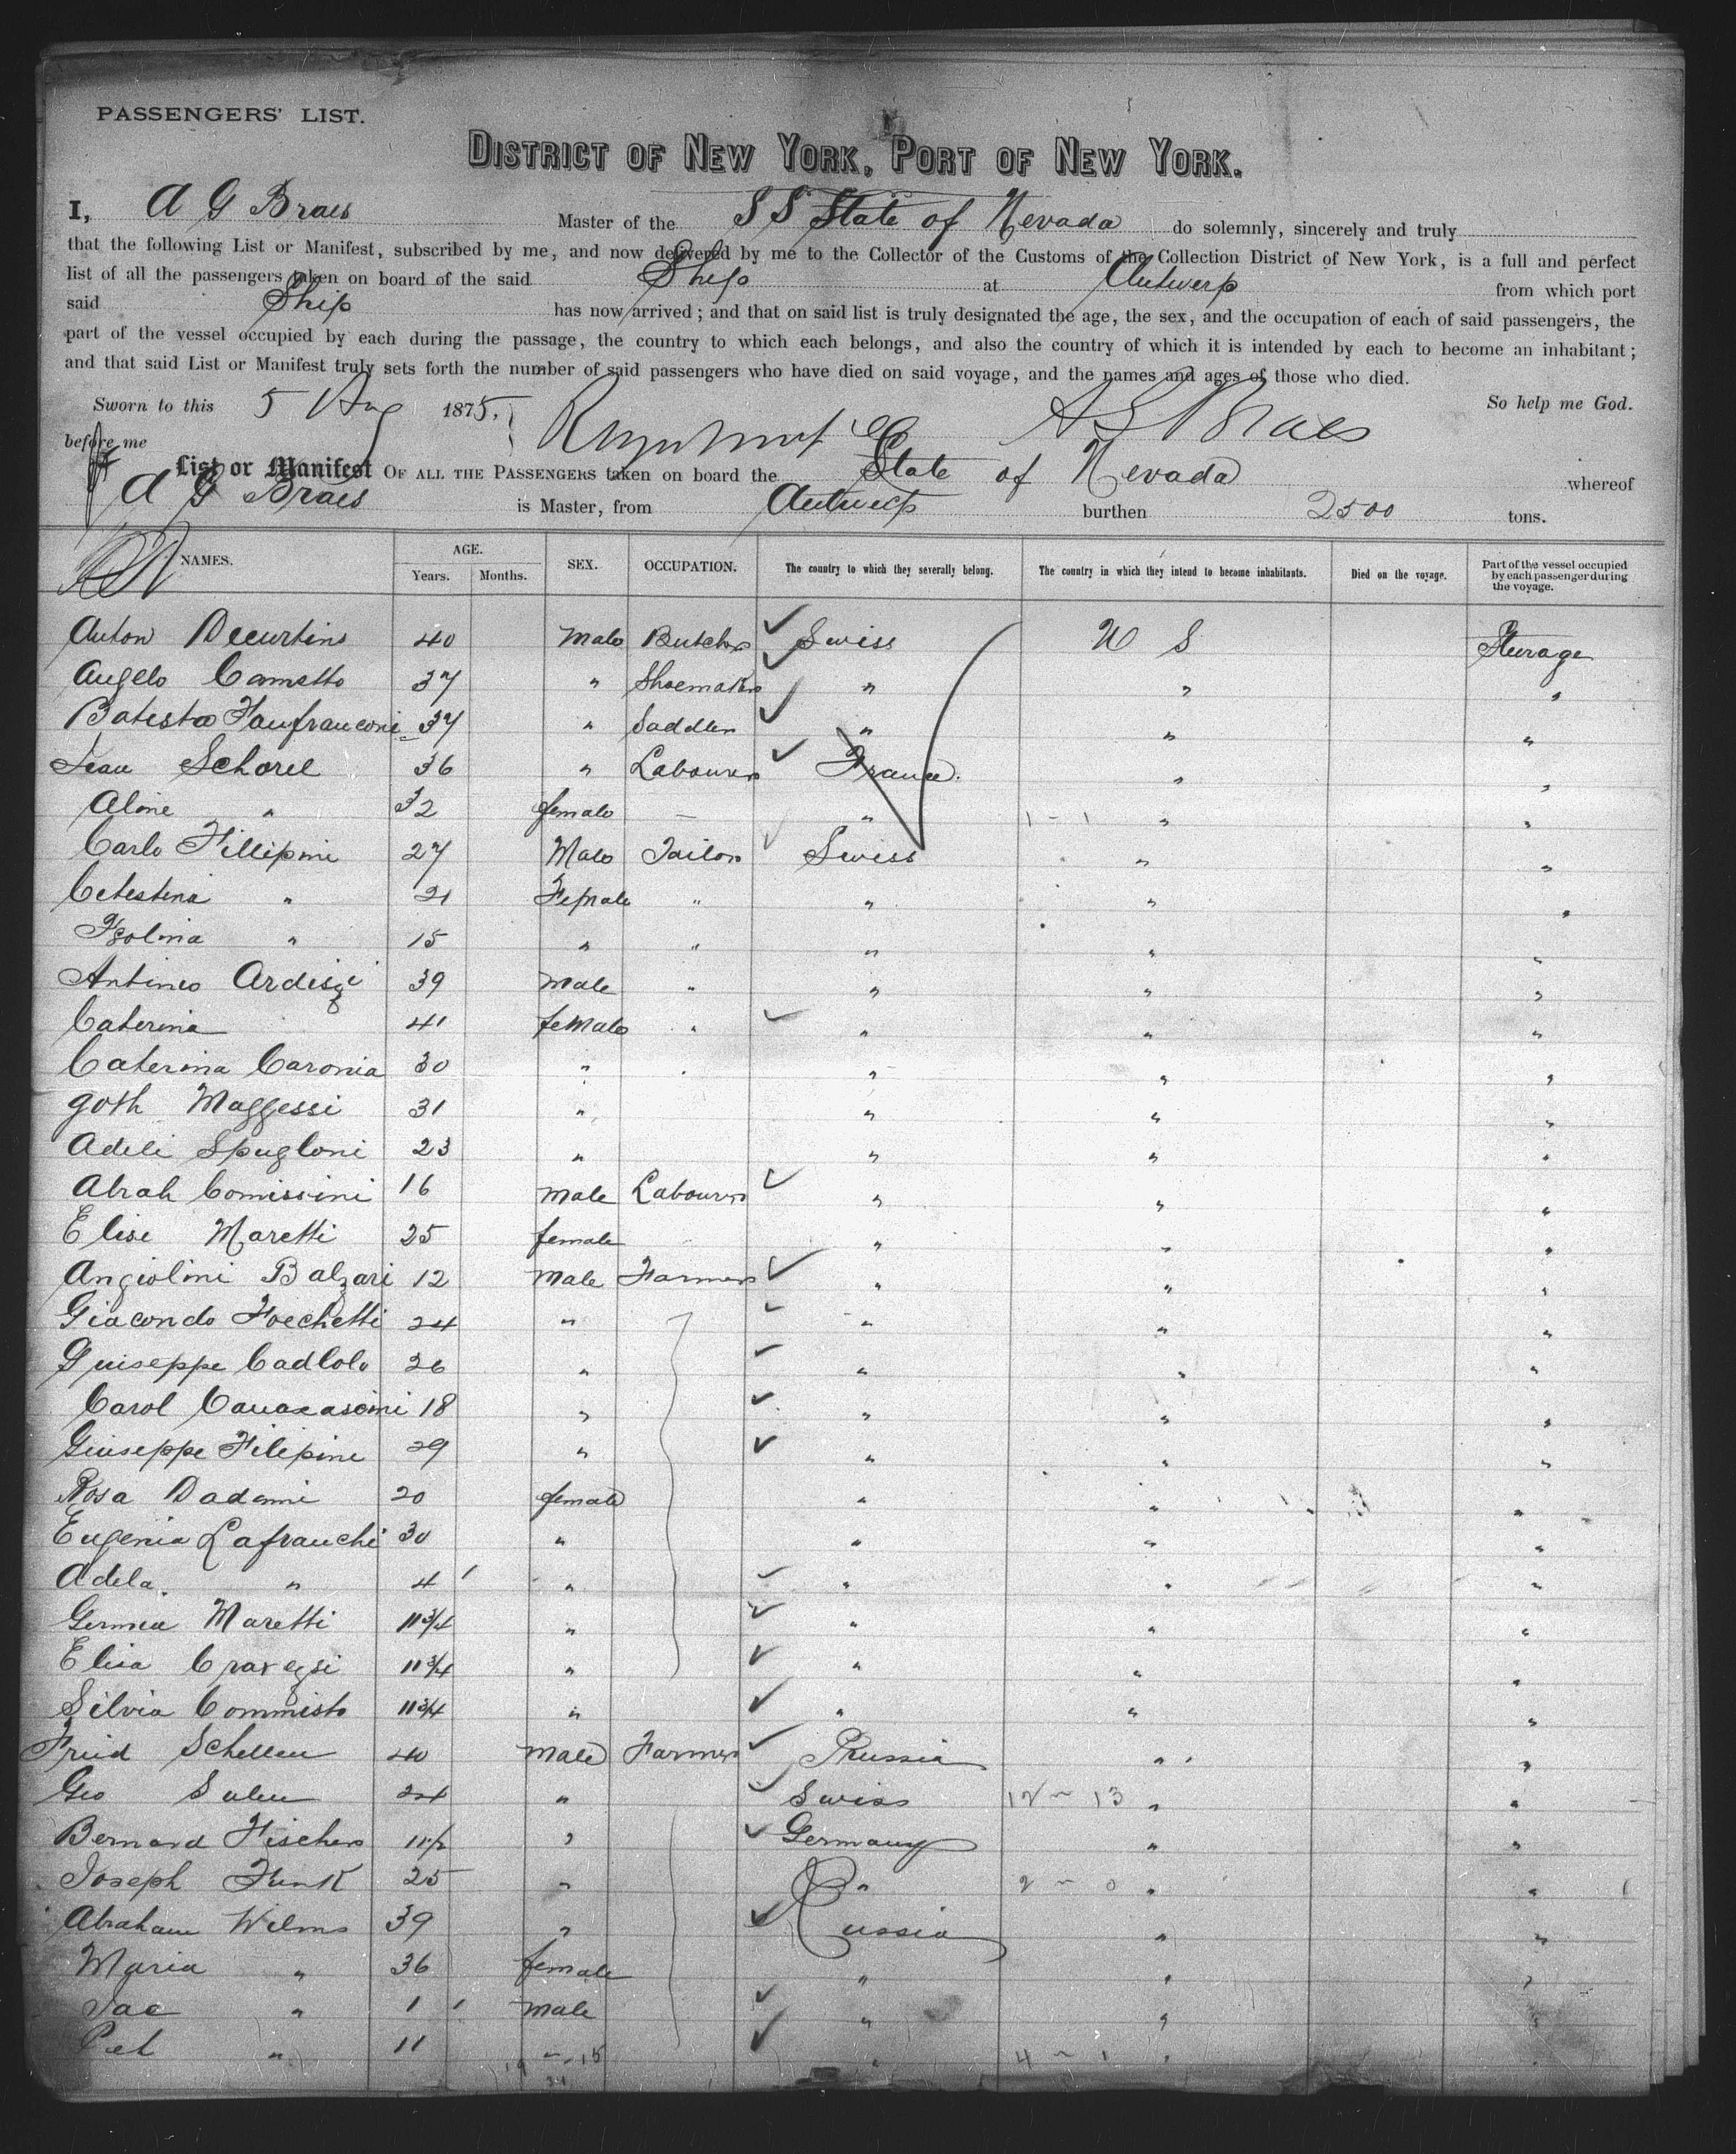 PASSENGERS' LIST.
DISTRICT OF NEW YORK, PORT OF NEW YORK.
I, A G Braes Master of the S S State of Nevada do solemnly, sincerely and truly
that the following List or Manifest, subscribed by me, and now delivered by me to the Collector of the Customs of the Collection District of New York, is a full and perfect
list of all the passengers taken on board of the said Ship at Antwerp from which port
said Ship has now arrived; and that on said list is truly designated the age, the sex, and the occupation of each of said passengers, the
part of the vessel occupied by each during the passage, the country to which each belongs, and also the country of which it is intended by each to become an inhabitant;
and that said List or Manifest truly sets forth the number of said passengers who have died on said voyage, and the names and ages of those who died.
Sworn to this 5 Aug 1875. A G Braes So help me God.
before me
List or Manifest OF ALL THE PASSENGERS taken on board the State of Nevada whereof
A G Braes is Master, from Antwerp burthen 2500 tons.
NAMES. AGE. Years. Months. SEX. OCCUPATION. The country to which they severally belong. The country in which they intend to become inhabitants. Died on the voyage. Part of the vessel occupied by each passenger during the voyage.
Anton Decurtins 40 Male Butcher Swiss U S Steerage
Angelo Cometto 37 " Shoemaker " " "
Batista Fanfranconi 37 " Saddler " " "
Jean Schorel 36 " Labourer France. " "
Aline " 32 female — " 1 - 1 " "
Carlo Fillipini 27 Male Tailor Swiss " "
Celestina " 21 Female " " " "
Isolina " 15 " " " " "
Antonio Ardisgi 39 male " " " "
Caterina 41 female " " " "
Caterina Caronia 30 " " " "
Goth Maggessi 31 " " " "
Adeli Spugloni 23 " " " "
Abrah Comissini 16 male Labourer " " "
Elise Maretti 25 female " " "
Angiolini Balzari 12 male Farmer " " "
Giacondo Foechetti 24 " " " "
Guiseppe Cadlolo 26 " " " "
Carol 18 " " " "
Giuseppe Filipini 29 " " " "
Rosa Dadami 20 female " " "
Eugenia Lafranchi 30 " " " "
Adela. " 4 " " " "
Germea Maretti 11 3/4 " " " "
Elisa 11 3/4 " " " "
Silvia Commisto 11 3/4 " " " "
Fried Schellen 40 male Farmer Prussia " "
Geo Sulen 24 " Swiss 12 - 13 " "
Bernard Fischer 11 1/2 " Germany " "
Joseph Funk 25 " " 2 - 0 " "
Abraham Wilms 39 " Russia " "
Maria " 36 female " " "
Jac " 1 male " " "
Pet " 11 " 4 - 1 "
19 - 15
34